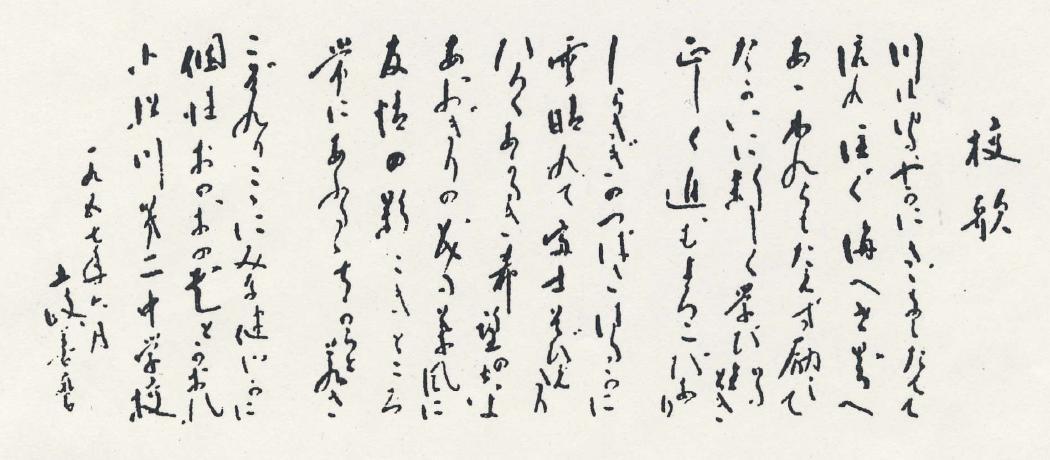 校歌
川は さざなみたてて
流れ注ぐ海へと
あゝわれらもたえず励みて
たがいに新しく学び
正しく進むよろこびあり
しらさぎのつばさはるかに
雪晴れて富士そびえたり
あかるき希望の
あおぎりの 薫風に
友情の影こきところ
常にあふるゝ力と若さ
こぞれりここにみな健かに
個性おのおの花とかおれ
小松川第二中学校
一九五七年六月
土岐善麿